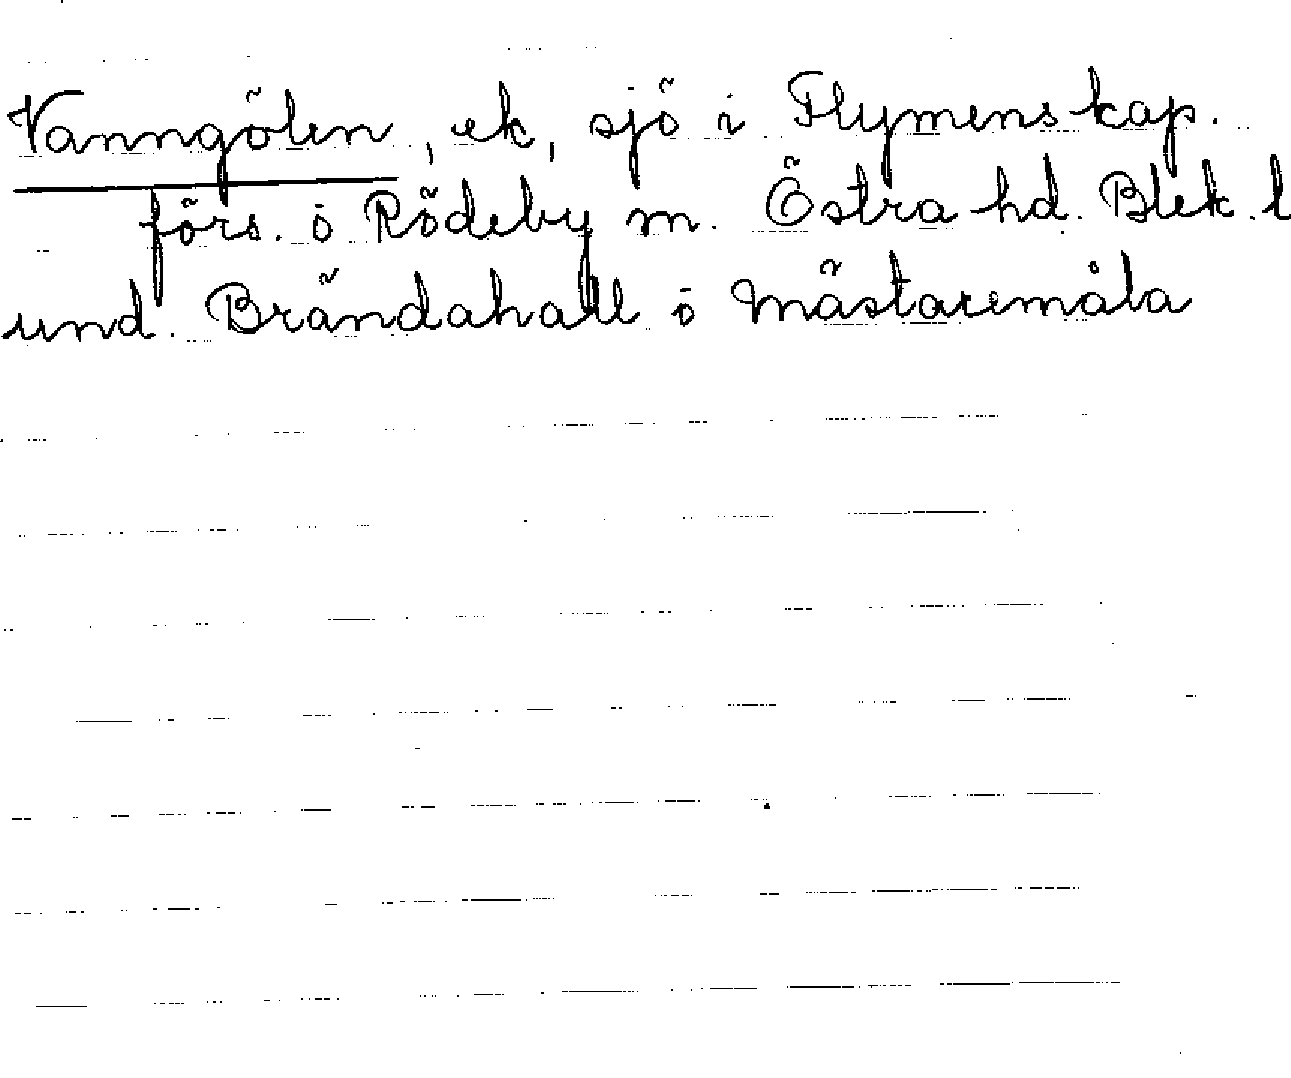 Vanngölen, ek, sjö i Flymens kap.
förs. o Rödeby m. Östra hd. Blek. l
und. Brändahall o Mästaremåla